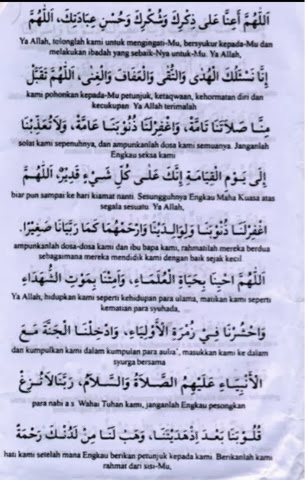 اَللّٰهُمَّ اَعِنَّا عَلَى ذِكْرِكَ وَشُكْرِكَ وَحُسْنِ عِبَادَتِكَ، اَللّٰهُمَّ
Ya Allah, tolonglah kami untuk mengingati-Mu, bersyukur kepada-Mu dan
melakukan ibadah yang sebaik-Nya untuk-Mu. Ya Allah,
إِنَّا نَسْئَلُكَ الْهُدٰى وَالتُّقٰى وَالْعَفَافَ وَالْغِنٰى، اَللّٰهُمَّ تَقَبَّلْ
kami pohonkan kepada-Mu petunjuk, ketaqwaan, kehormatan diri dan
kecukupan Ya Allah terimalah
مِنَّا صَلَاتَنَا تَامَّةً، وَاغْفِرْلَنَا ذُنُوْبَنَا عَامَّةً، وَلَاتُعَذِّبْنَا
solat kami sepenuhnya, dan ampunkanlah dosa kami semuanya. Janganlah
Engkau seksa kami
إِلٰى يَوْمِ الْقِيَامَةِ إِنَّكَ عَلٰى كُلِّ شَيْءٍ قَدِيْرٌ، اَللّٰهُمَّ
biar pun sampai ke hari kiamat nanti. Sesungguhnya Engkau Maha Kuasa atas
segala sesuatu Ya Allah,
اغْفِرْلَنَا ذُنُوْبَنَا وَلِوَالِدِيْنَا وَارْحَمْهُمَا كَمَا رَبَّيَانَا صَغِيْرًا.
ampunkanlah dosa-dosa kami dan ibu bapa kami, rahmatilah mereka berdua
sebagaimana mereka mendidik kami dengan baik sejak kecil
اَللّٰهُمَّ احْيِنَا بِحَيَاةِ الْعُلَمَاءِ، وَاَمِتْنَا بِمَوْتِ الشُّهَدَاءِ
Ya Allah, hidupkan kami seperti kehidupan para ulama, matikan kami seperti
kematian para syuhada,
وَاحْشُرْنَا فِيْ زُمْرَةِ الْأَوْلِيَاءِ، وَادْخِلْنَا الْجَنَّةَ مَعَ
dan kumpulkan kami dalam kumpulan para aulia', masukkan kami ke dalam
syurga bersama
الْأَنْبِيَاءِ عَلَيْهِمُ الصَّلَاةُ وَالسَّلَامُ، رَبَّنَالَاتُزِغْ
para nabi a.s. Wahai Tuhan kami, janganlah Engkau pesongkan
قُلُوْبَنَا بَعْدَ اِذْهَدَيْتَنَا، وَهَبْ لَنَا مِنْ لَدُنْكَ رَحْمَةً
hati kami setelah mana Engkau berikan petunjuk kepada kami. Berikanlah kami
rahmat dari sisi-Mu,